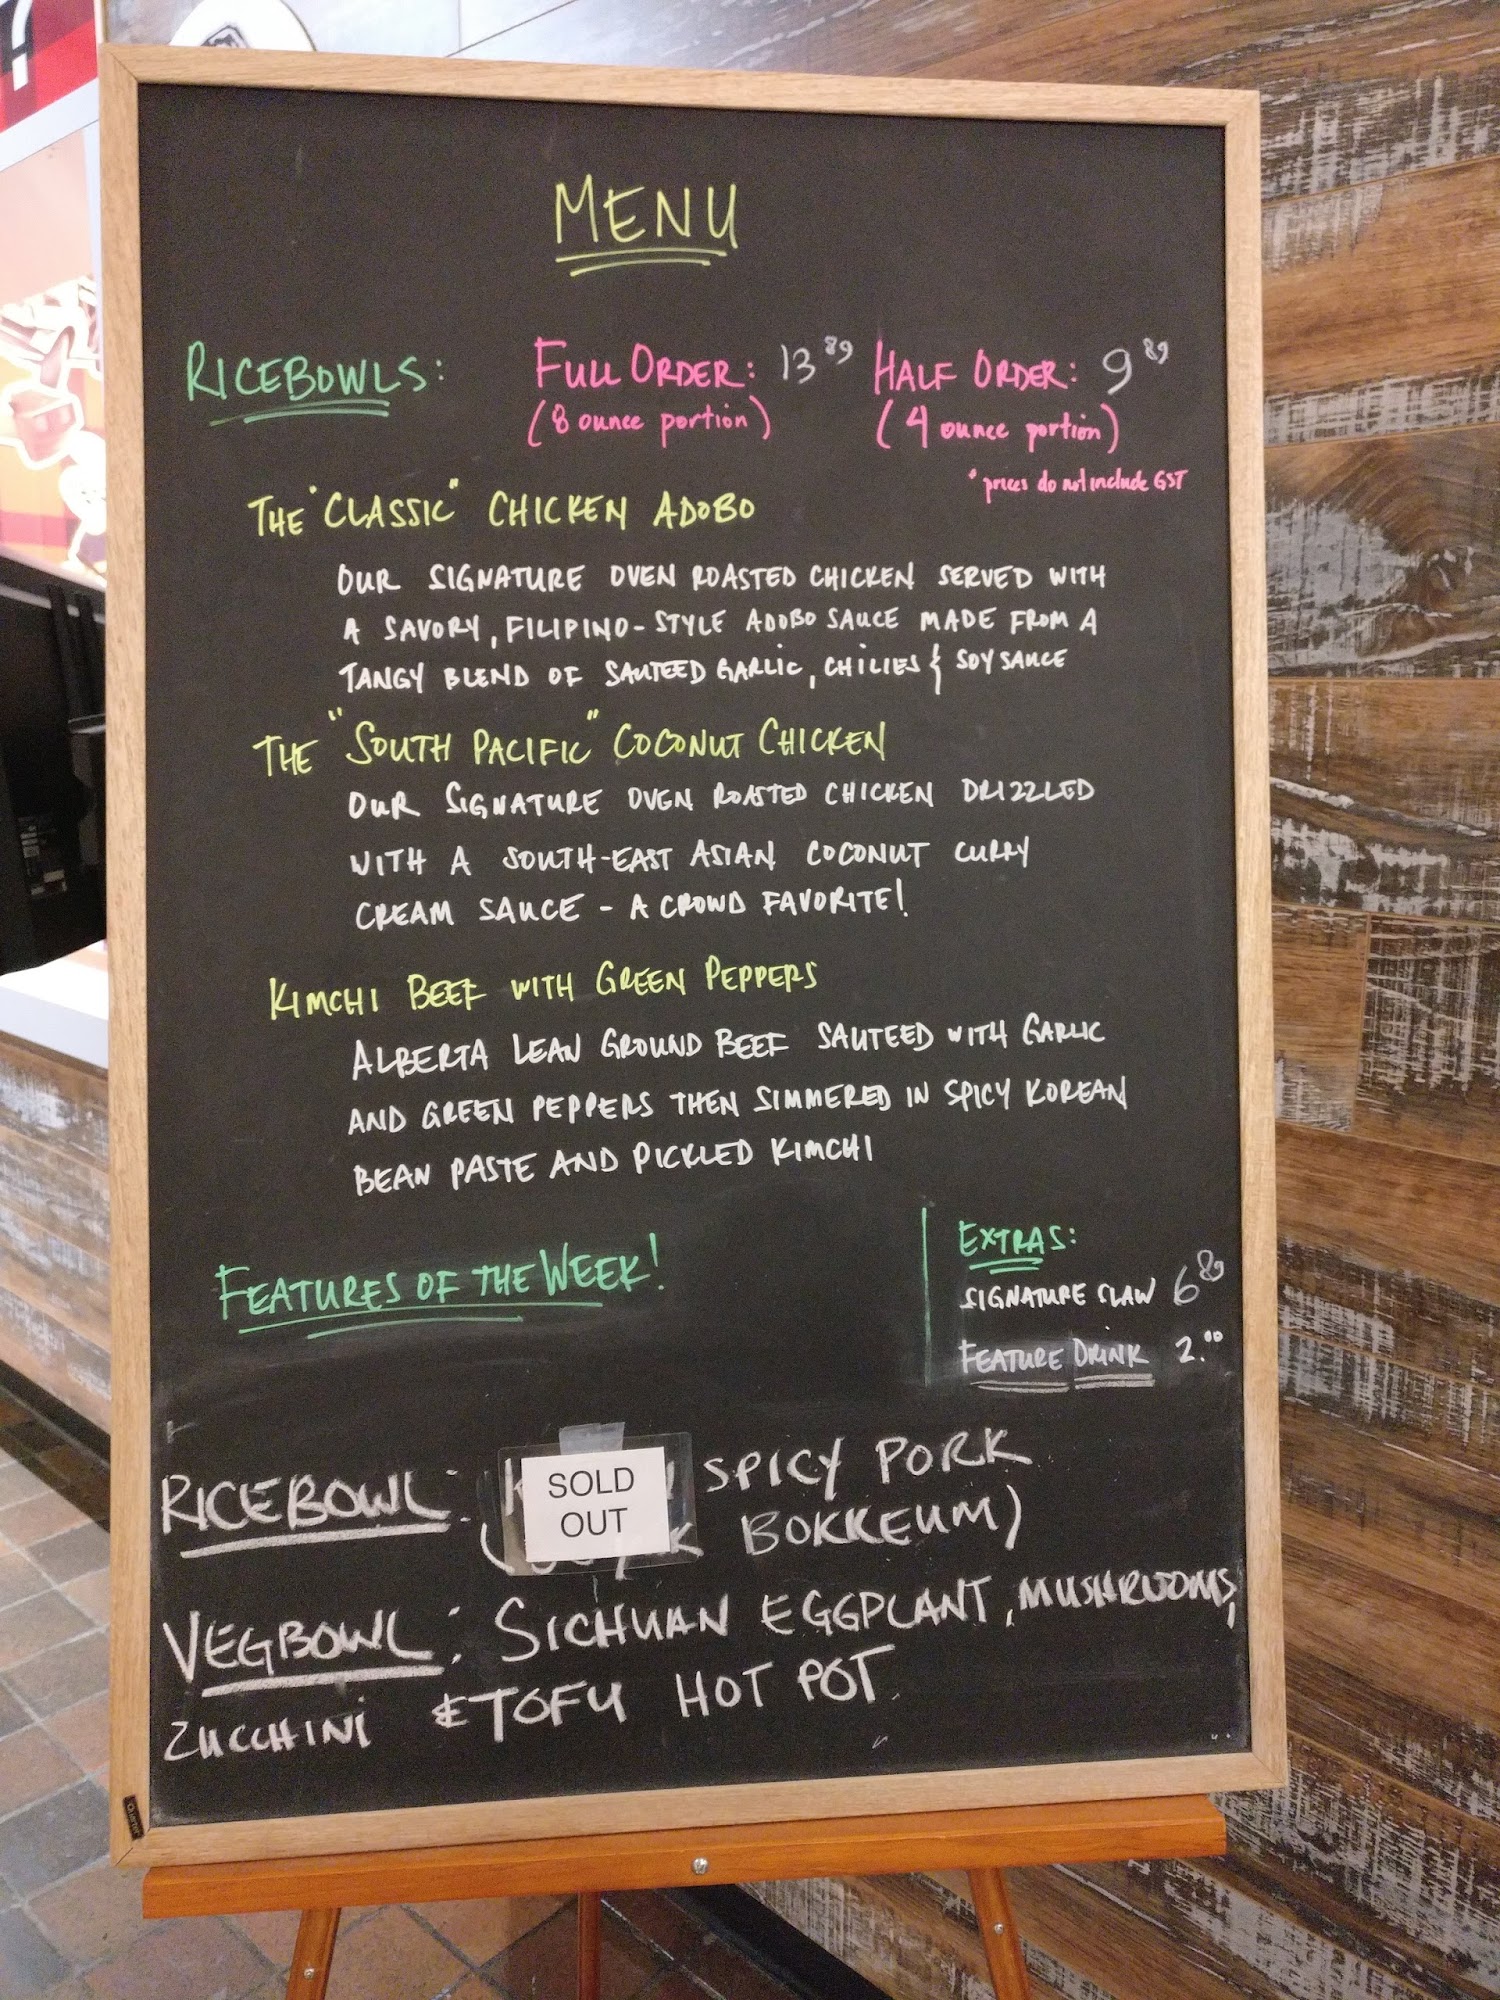 MENU
RICEBOWLS: FULL ORDER: 13 89 HALF ORDER: 9 89
(8 ounce portion) (4 ounce portion)
* prices do not include GST
THE "CLASSIC" CHICKEN ADOBO
OUR SIGNATURE OVEN ROASTED CHICKEN SERVED WITH
A SAVORY, FILIPINO-STYLE ADOBO SAUCE MADE FROM A
TANGY BLEND OF SAUTEED GARLIC, CHILIES & SOY SAUCE
THE "SOUTH PACIFIC" COCONUT CHICKEN
OUR SIGNATURE OVEN ROASTED CHICKEN DRIZZLED
WITH A SOUTH-EAST ASIAN COCONUT CURRY
CREAM SAUCE - A CROWD FAVORITE!
KIMCHI BEEF WITH GREEN PEPPERS
ALBERTA LEAN GROUND BEEF SAUTEED WITH GARLIC
AND GREEN PEPPERS THEN SIMMERED IN SPICY KOREAN
BEAN PASTE AND PICKLED KIMCHI
FEATURES OF THE WEEK!
EXTRAS:
SIGNATURE SLAW 6 89
FEATURE DRINK 2.00
RICEBOWL: SPICY PORK
BOKKEUM)
SOLD
OUT
VEGBOWL: SICHUAN EGGPLANT, MUSHROOMS,
ZUCCHINI & TOFU HOT POT